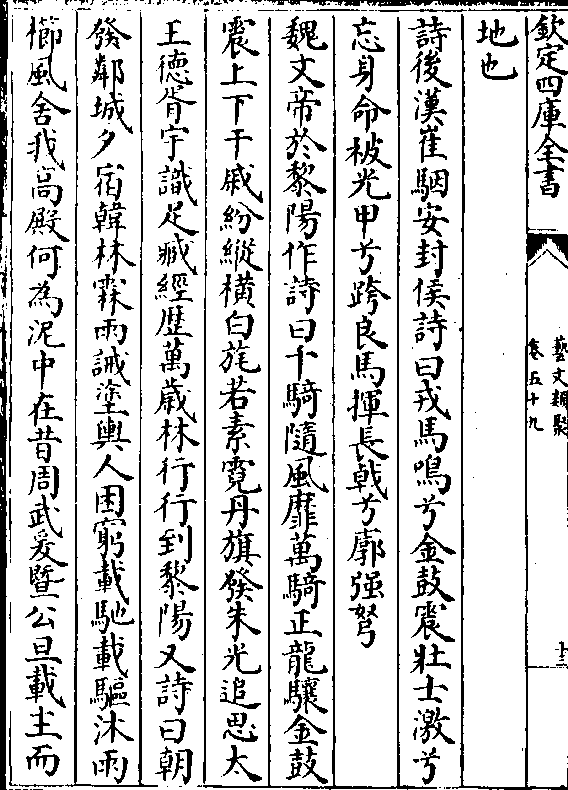 欽定四庫全書
藝文類聚
卷五十九
十三
地也
詩後漢崔駰安封侯詩曰戎馬鳴兮金鼓震壯士激兮
忘身命被光甲兮跨良馬揮長戟兮廓强弩
魏文帝於黎陽作詩曰千騎隨風靡萬騎正龍驤金鼓
震上下干戚紛縱橫白旄若素霓丹旗發朱光追思太
王德胥宇識足臧經歴萬歲林行行到黎陽又詩曰朝
發鄴城夕宿韓林霖雨誡塗輿人困窮載馳載驅沐雨
櫛風舍我高殿何為泥中在昔周武爰暨公旦載主而